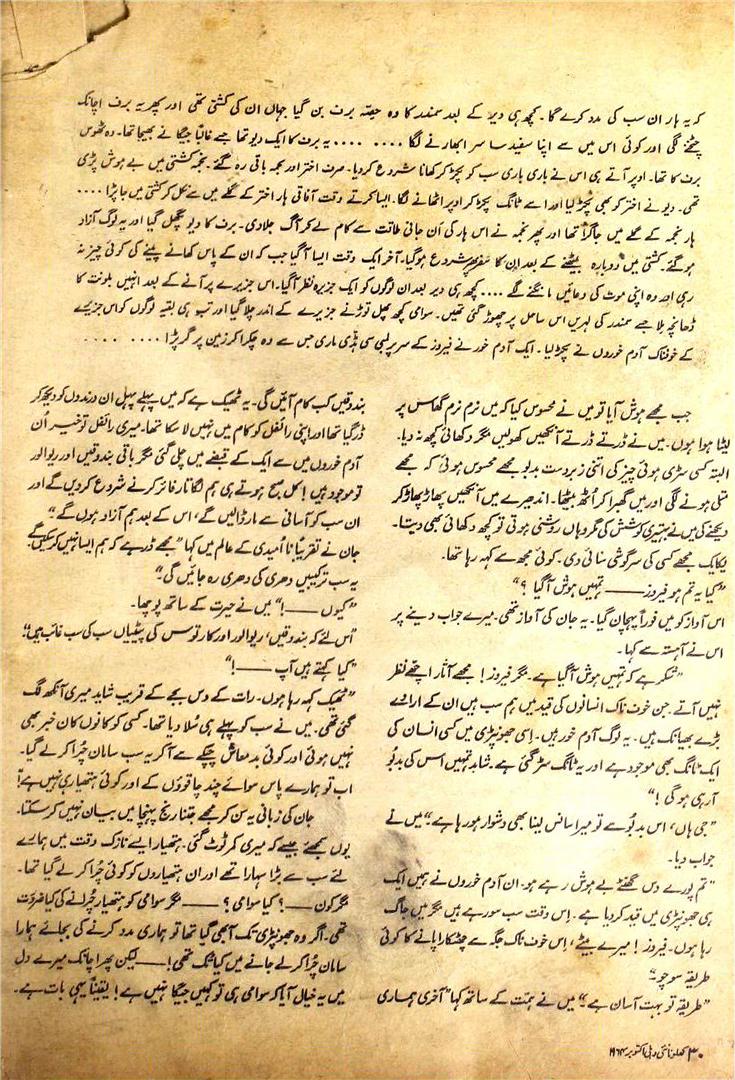 کہ یہ ہار ان سب کی مدد کرے گا۔ کچھ ہی دیر کے بعد سمندر کا وہ حصّہ برف بن گیا جہاں ان کی کشتی تھی اور پھر یہ برف اچانک
چٹخنے لگی اور کوئی اس میں سے اپنا سفید سا سر ابھارنے لگا .... .... یہ برف کا ایک دیو تھا جسے غالباً جیگا نے بھیجا تھا۔ وہ ٹھوس
برف کا تھا۔ اوپر آتے ہی اس نے باری باری سب کو پکڑ کر کھانا شروع کر دیا۔ صرف اختر اور نجمہ باقی رہ گئے۔ نجمہ کشتی میں بے ہوش پڑی
تھی۔ دیو نے اختر کو بھی پکڑ لیا اور اسے ٹانگ پکڑ کر اوپر اٹھانے لگا۔ ایسا کرتے وقت آفاقی ہار اختر کے گلے میں سے نکل کر کشتی میں جا پڑا ....
ہار نجمہ کے گلے میں جا گرا تھا اور پھر نجمہ نے اس ہار کی اَن جانی طاقت سے کام لے کر آگ جلا دی۔ برف کا دیو پگھل گیا اور یہ لوگ آزاد
ہو گئے۔ کشتی میں دوبارہ بیٹھنے کے بعد اِن کا سفر پھر شروع ہو گیا۔ آخر ایک وقت ایسا آ گیا جب کہ ان کے پاس کھانے پینے کی کوئی چیز نہ
رہی اور وہ اپنی موت کی دعائیں مانگنے لگے .... کچھ ہی دیر بعد ان لوگوں کو ایک جزیرہ نظر آ گیا۔ اس جزیرے پر آنے کے بعد انہیں بلونت کا
ڈھانچہ ملا جسے سمندر کی لہریں اس ساحل پر چھوڑ گئی تھیں۔ سوامی کچھ پھل توڑنے جزیرے کے اندر چلا گیا اور تب ہی بقیہ لوگوں کو اس جزیرے
کے خوفناک آدم خوروں نے پکڑ لیا۔ ایک آدم خور نے فیروز کے سر پر لمبی سی ہڈی ماری جس سے وہ چکرا کر زمین پر گر پڑا .... ....
جب مجھے ہوش آیا تو میں نے محسوس کیا کہ میں نرم نرم گھاس پر
لیٹا ہوا ہوں۔ میں نے ڈرتے ڈرتے آنکھیں کھولیں مگر دکھائی کچھ نہ دیا۔
البتہ کسی سڑی ہوئی چیز کی اتنی زبردست بدبو مجھے محسوس ہوئی کہ مجھے
متلی ہونے لگی اور میں گھبرا کر اُٹھ بیٹھا۔ اندھیرے میں آنکھیں پھاڑ پھاڑ کر
دیکھنے کی میں نے بہتیری کوشش کی گر وہاں روشنی ہوتی تو کچھ دکھائی بھی دیتا۔
یکایک مجھے کسی کی سرگوشی سنائی دی۔ کوئی مجھ سے کہہ رہا تھا۔
"کیا یہ تم ہو فیروز ـــــــ تمہیں ہوش آ گیا ؟"
اس آواز کو میں فوراً پہچان گیا۔ یہ جان کی آواز تھی۔ میرے جواب دینے پر
اس نے آہستہ سے کہا۔
"شکر ہے کہ تمہیں ہوش آ گیا ہے۔ مگر فیروز! مجھے آثار اچھے نظر
نہیں آتے۔ جن خوف ناک انسانوں کی قید میں ہم سب ہیں ان کے ارادے
بڑے بھیانک ہیں۔ یہ لوگ آدم خور ہیں۔ اِسی جھونپڑی میں کسی انسان کی
ایک ٹانگ بھی موجود ہے اور یہ ٹانگ سڑ گئی ہے۔ شاید تمہیں اس کی بدبُو
آ رہی ہو گی !"
"جی ہاں، اس بدبُو سے تو میرا سانس لینا بھی دشوار ہو رہا ہے۔" میں نے
جواب دیا۔
"تم پورے دس گھنٹے بے ہوش رہے ہو۔ ان آدم خوروں نے ہمیں ایک
ہی جھونپڑی میں قید کر دیا ہے۔ اِس وقت سب سو رہے ہیں مگر میں جاگ
رہا ہوں۔ فیروز! میرے بیٹے، اِس خوف ناک جگہ سے چھٹکارا پانے کا کوئی
طریقہ سوچو۔"
"طریقہ تو بہت آسان ہے۔" میں نے ہمّت کے ساتھ کہا "آخر ی ہماری
بندوقیں کب کام آئیں گی۔ یہ ٹھیک ہے کہ میں پہلے پہل ان درندوں کو دیکھ کر
ڈر گیا تھا اور اپنی رائفل کو کام میں نہیں لا سکا تھا۔ میری رائفل تو خیر اُن
آدم خوروں میں سے ایک کے قبضے میں چلی گئی مگر باقی بندوقیں اور ریوالور
تو موجود ہیں! کل صبح ہوتے ہی ہم لگاتار فائر کرنے شروع کر دیں گے اور
ان سب کو آسانی سے مار ڈالیں گے، اس کے بعد ہم آزاد ہوں گے۔"
جان نے تقریباً نا اُمیدی کے عالم میں کہا "مجھے ڈر ہے کہ ہم ایسا نہیں کر سکیں گے
یہ سب ترکیبیں دھری کی دھری رہ جائیں گی۔"
"کیوں ـــــ!" میں نے حیرت کے ساتھ پوچھا۔
"اس لئے کہ بندوقیں، ریوالور اور کارتوس کی پیٹیاں سب کی سب غائب ہیں!"
"کیا کہتے ہیں آپ ـــــ!"
"ٹھیک کہہ رہا ہوں۔ رات کے دس بجے کے قریب شاید میری آنکھ لگ
گئی تھی۔ میں نے سب کو پہلے ہی سُلا دیا تھا۔ کسی کو کانوں کان خبر بھی
نہیں ہوئی اور کوئی بدمعاش چپکے سے آ کر یہ سب سامان چُرا کر لے گیا۔
اب تو ہمارے پاس سوائے چند چاقوؤں کے اور کوئی ہتھیار ہی نہیں ہے!"
جان کی زبانی یہ سن کر مجھے جتنا رنج پہنچا میں بیان نہیں کر سکتا۔
یوں سمجھئے جیسے کہ میری کمر ٹوٹ گئی۔ ہتھیار ایسے نازک وقت میں ہمارے
لئے سب سے بڑا سہارا تھے اور ان ہتھیاروں کو کوئی چُرا کر لے گیا تھا۔
مگر کون ـــــ؟ کیا سوامی؟ ـــــ مگر سوامی کو ہتھیار چُرانے کی کیا ضرورت
تھی۔ اگر وہ جھونپڑی تک آ بھی گیا تھا تو ہماری مدد کرنے کی بجائے ہمارا
سامان چُرا کر لے جانے میں کیا تُک تھی! ـــــ لیکن پھر اچانک میرے دل
میں یہ خیال آیا کہ سوامی ہی تو کہیں جیگا نہیں ہے! یقیناً یہی بات ہے۔
۳۰ کھلونا نئی دہلی اکتوبر ۱۹۶۴ء